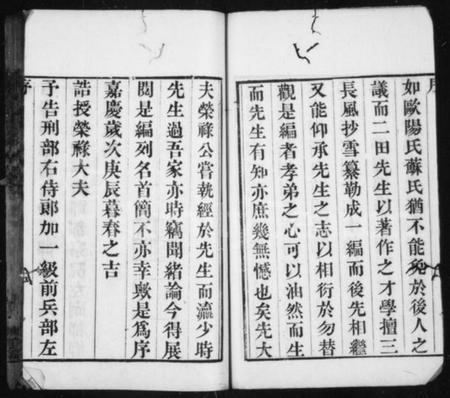 如歐陽氏蘇氏猶不能免於後人之
議而二田先生以著作之才學擅三
長風抄雪纂勒成一編而後先相繼
又能仰承先生之志以相衍於勿替
觀是編者孝弟之心可以油然而生
而先生有知亦庶幾無憾也矣先大
夫榮祿公嘗就經於先生而瀛少時
先生過吾家亦時竊聞緒論今得展
閱是編列名首簡不亦幸歟是爲序
嘉慶歲次庚辰暮春之吉
誥授榮祿大夫
予告刑部右侍郎加一級前兵部左
序